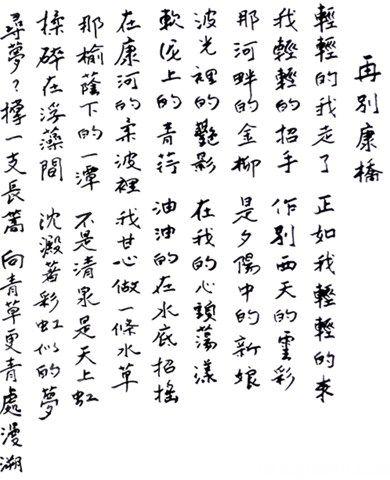 再別康橋
輕輕的我走了 正如我輕輕的來
我輕輕的招手 作別西天的雲彩
那河畔的金柳 是夕陽中的新娘
波光裡的艷影 在我的心頭蕩漾
軟泥上的青荇 油油的在水底招搖
在康河的柔波裡 我甘心做一條水草
那榆蔭下的一潭 不是清泉是天上虹
揉碎在浮藻間 沈澱著彩虹似的夢
尋夢？撐一支長篙 向青草更青處漫溯